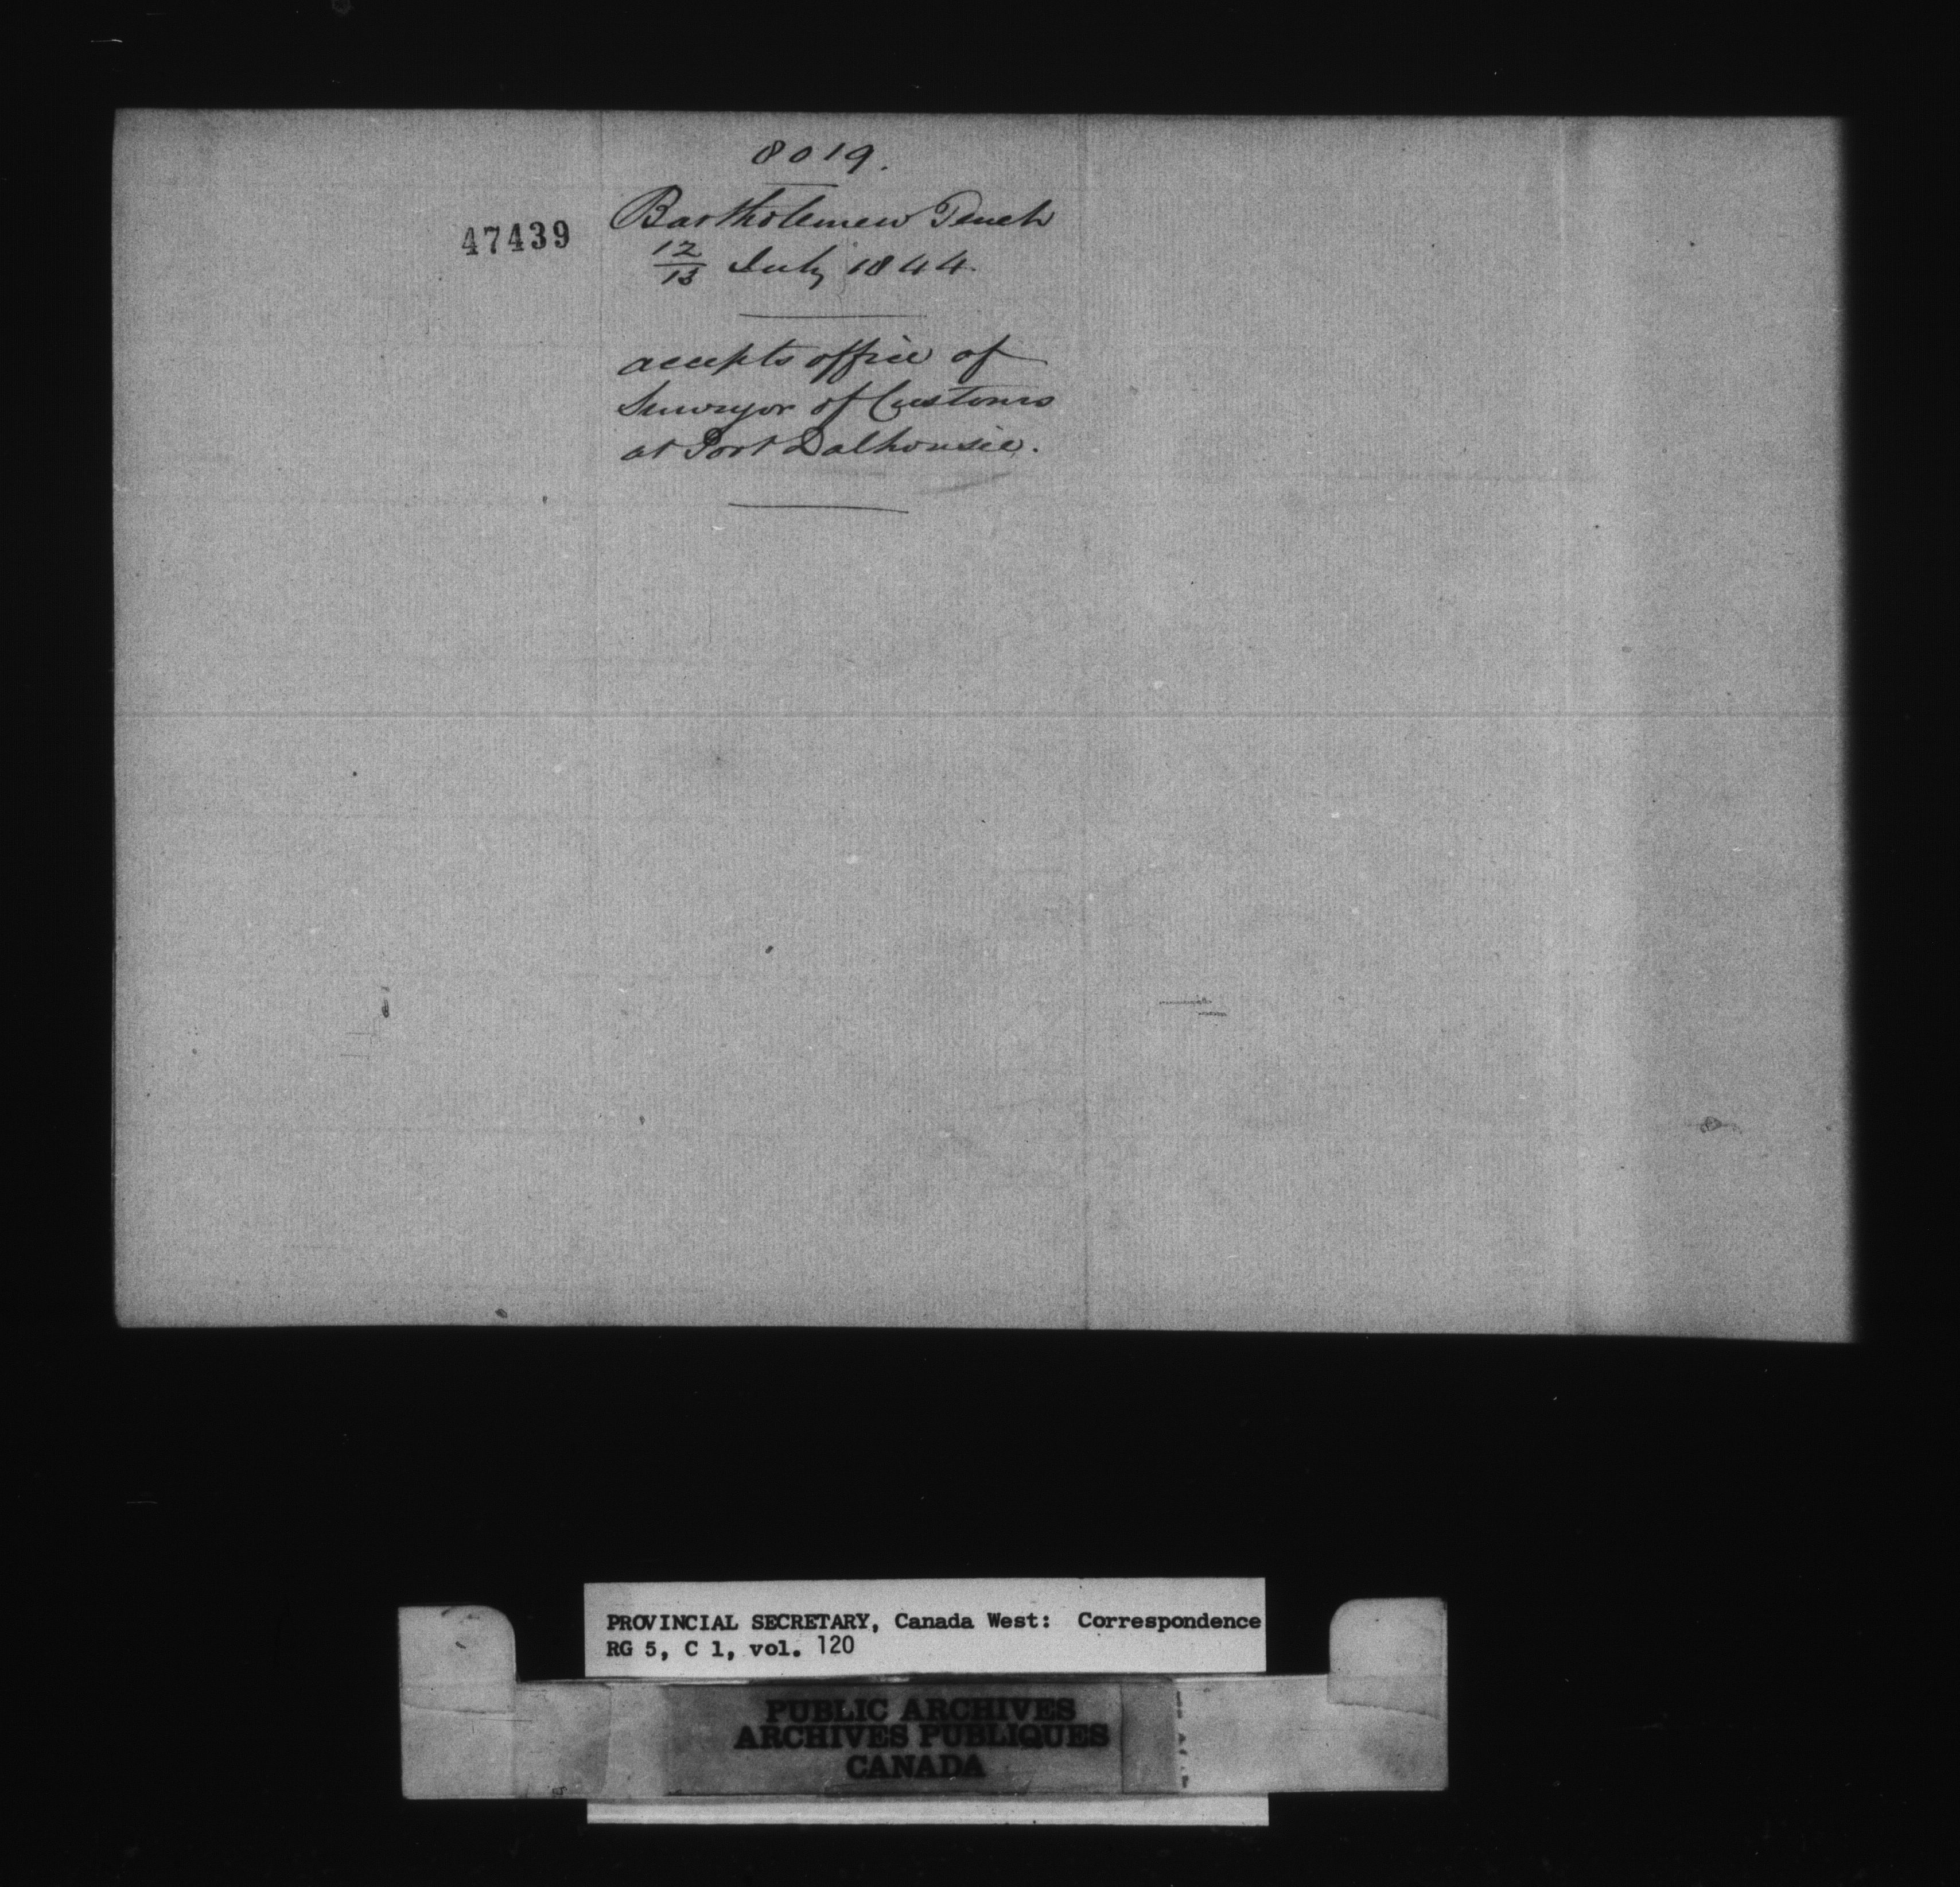 8019.
47439
Bartholemew Tench
12/13 July 1844.
accepts office of
Surveyor of Customs
at Port Dalhousie.
PROVINCIAL SECRETARY, Canada West: Correspondence
RG 5, C 1, vol. 120
PUBLIC ARCHIVES
ARCHIVES PUBLIQUES
CANADA